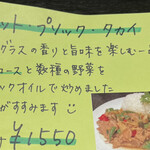 ット・プリック・タカイ
グラスの香りと旨味を楽しむ一
ロースと数種の野菜を
ックオイルで炒めました
がすすみます
¥1550